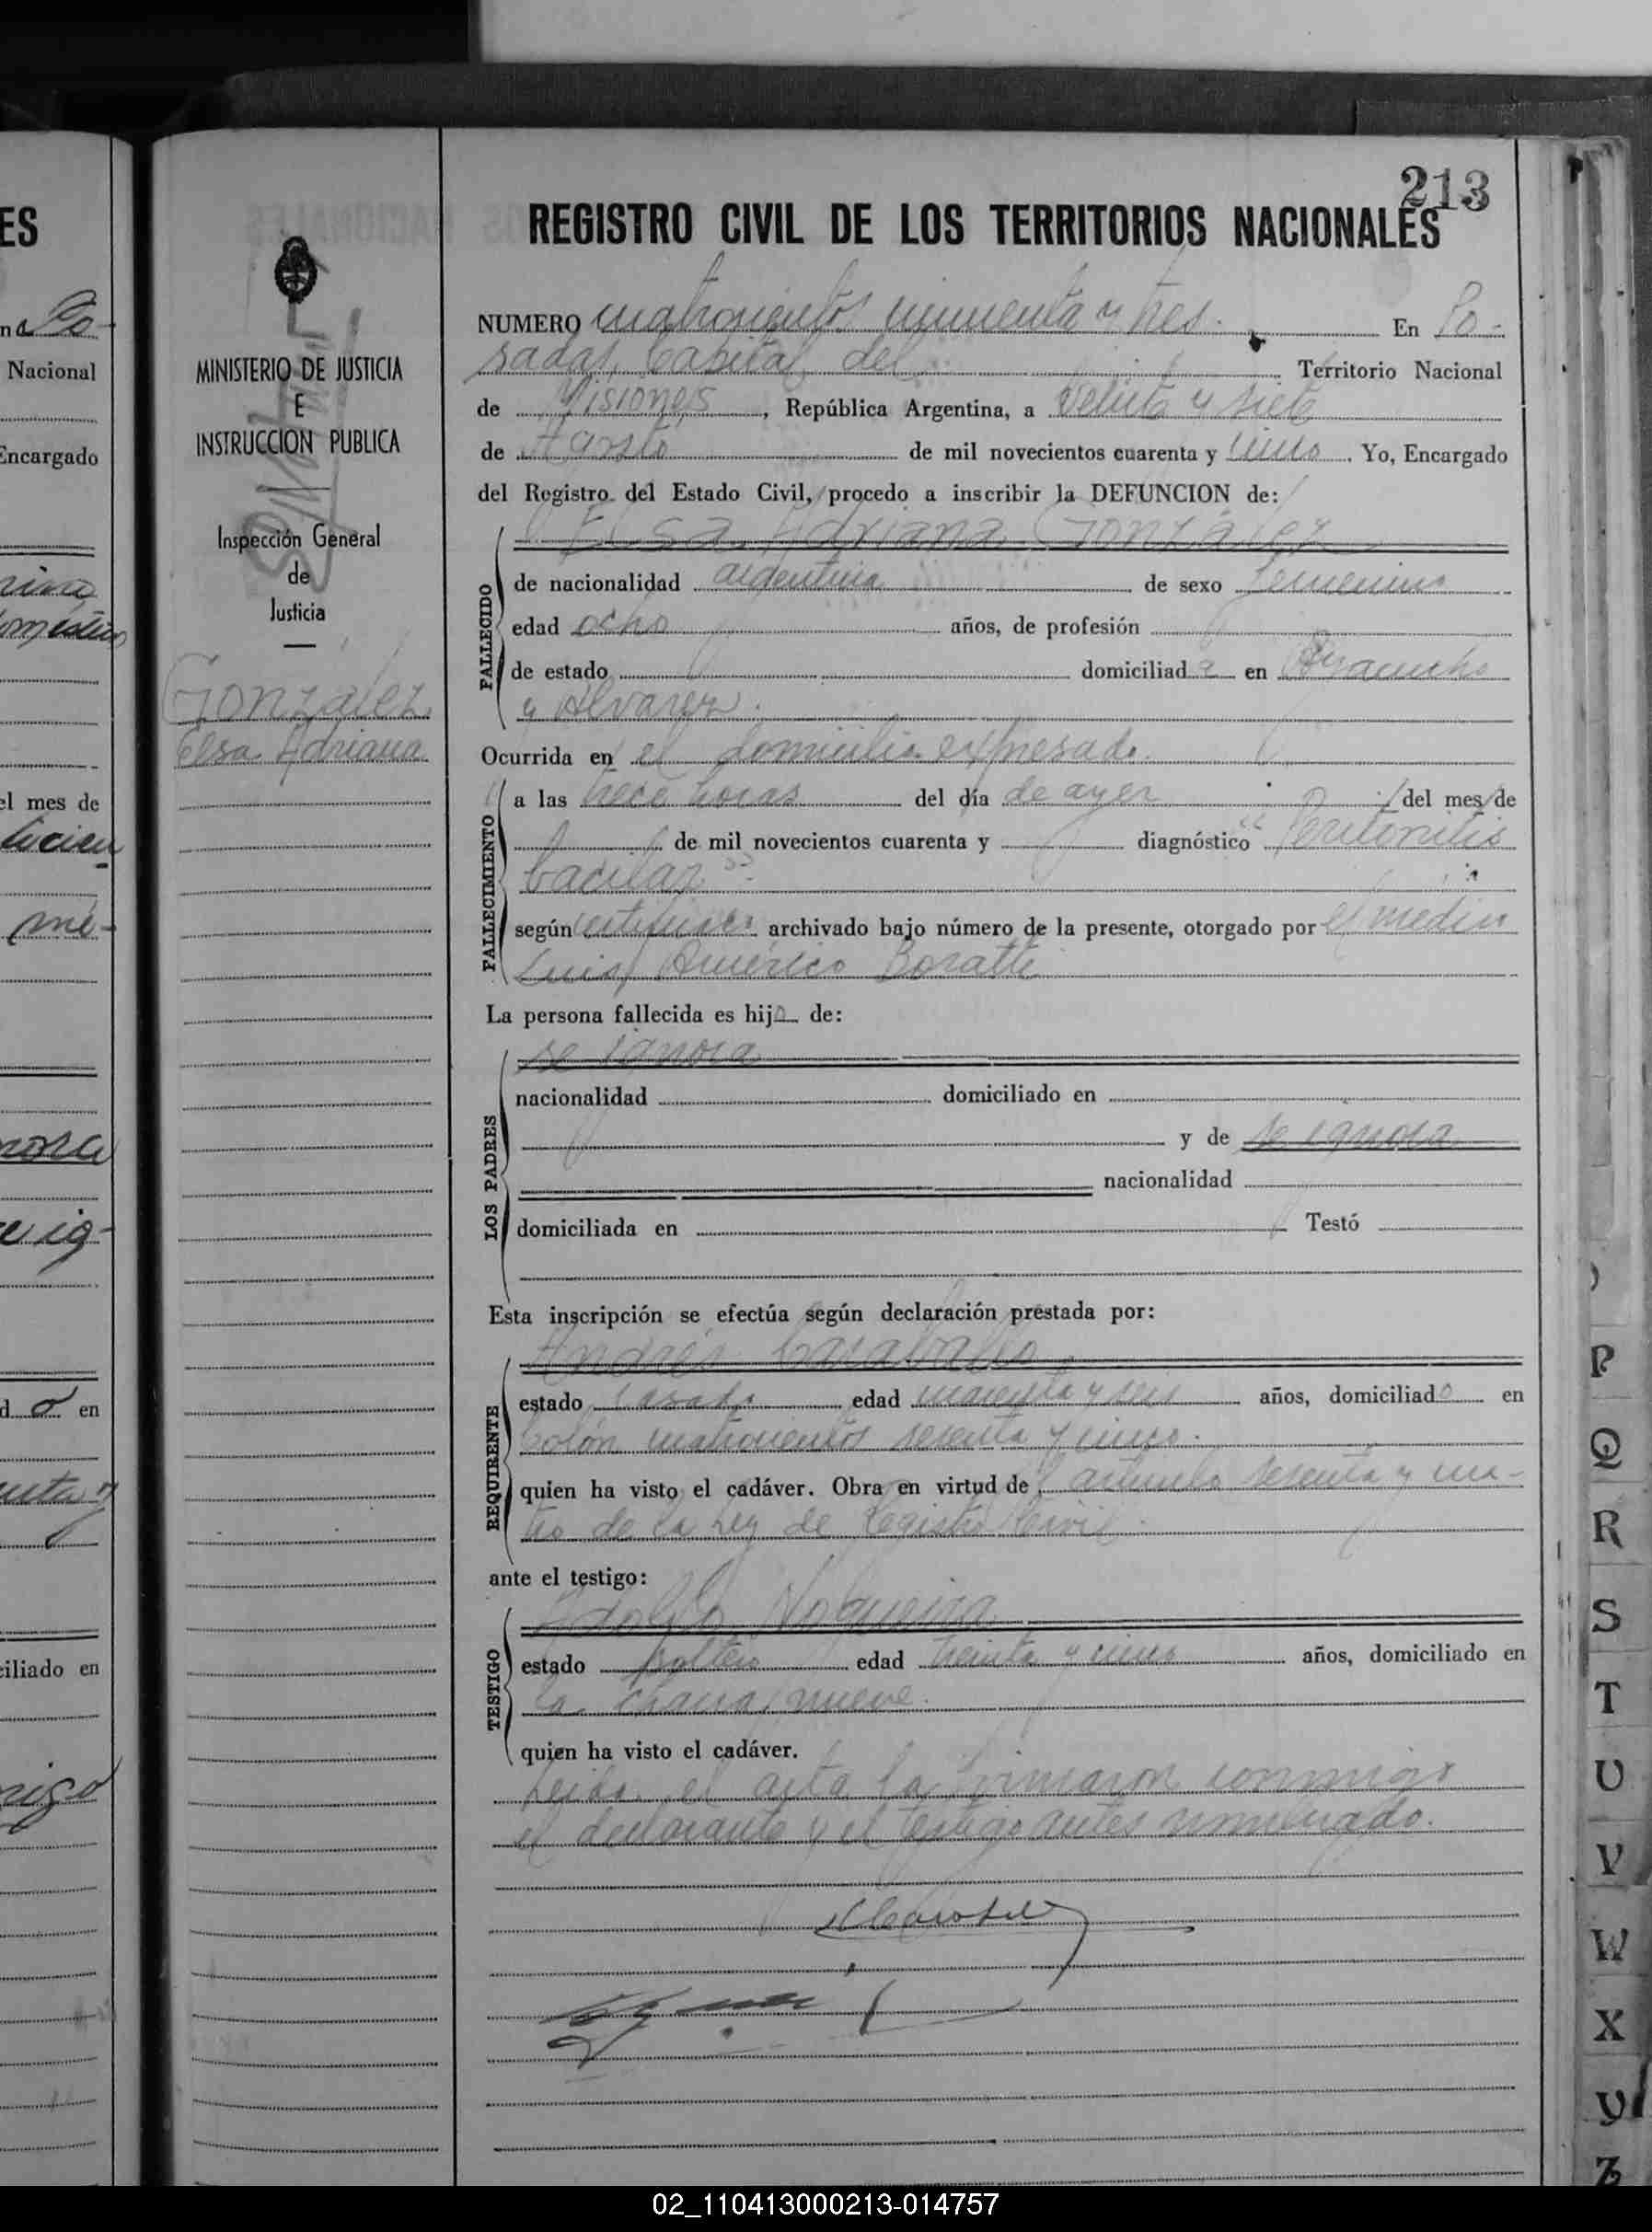 213
REGISTRO CIVIL DE LOS TERRITORIOS NACIONALES
NUMERO cuatrocientos cincuenta y tres. En Po-
sadas, Capital del Territorio Nacional
de Misiones, República Argentina, a veinte y siete
de Agosto de mil novecientos cuarenta y cinco. Yo, Encargado
del Registro del Estado Civil, procedo a inscribir la DEFUNCION de:
Elsa Adriana González
FALLECIDO
de nacionalidad argentina de sexo femenino
edad ocho años, de profesión
de estado domiciliada en Ayacucho
y Alvarez.
Ocurrida en el domicilio expresado.
FALLECIMIENTO
a las trece horas del día de ayer del mes de
de mil novecientos cuarenta y diagnóstico "Peritonitis
bacilar"
según certificado archivado bajo número de la presente, otorgado por el médico
Luis Américo Boratti
La persona fallecida es hija de:
LOS PADRES
se ignora
nacionalidad domiciliado en
y de se ignora
nacionalidad
domiciliada en Testó
Esta inscripción se efectúa según declaración prestada por:
REQUIRENTE
Andrés Caraballo
estado casado edad cuarenta y seis años, domiciliado en
Colón cuatrocientos sesenta y cinco.
quien ha visto el cadáver. Obra en virtud de artículo sesenta y cua-
tro de la Ley de Registro Civil.
ante el testigo:
TESTIGO
Adolfo Nogueira
estado soltero edad treinta y cinco años, domiciliado en
la chacra nueve.
quien ha visto el cadáver.
Leída el acta la firmaron conmigo
el declarante y el testigo antes nombrado.
MINISTERIO DE JUSTICIA
E
INSTRUCCION PUBLICA
Inspección General
de
Justicia
González
Elsa Adriana
ES
Nacional
Encargado
el mes de
mé-
en
ciliado en
P
Q
R
S
T
U
V
W
X
Y
Z
02_110413000213-014757